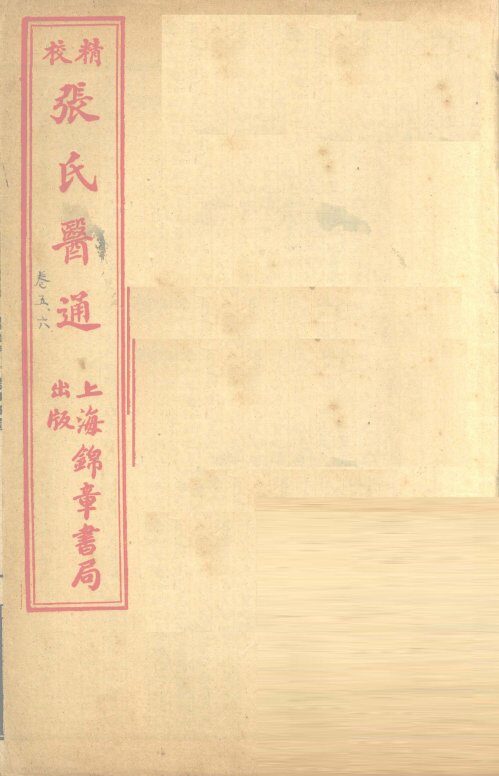 精校
張氏醫通
卷五、六
上海錦章書局
出版